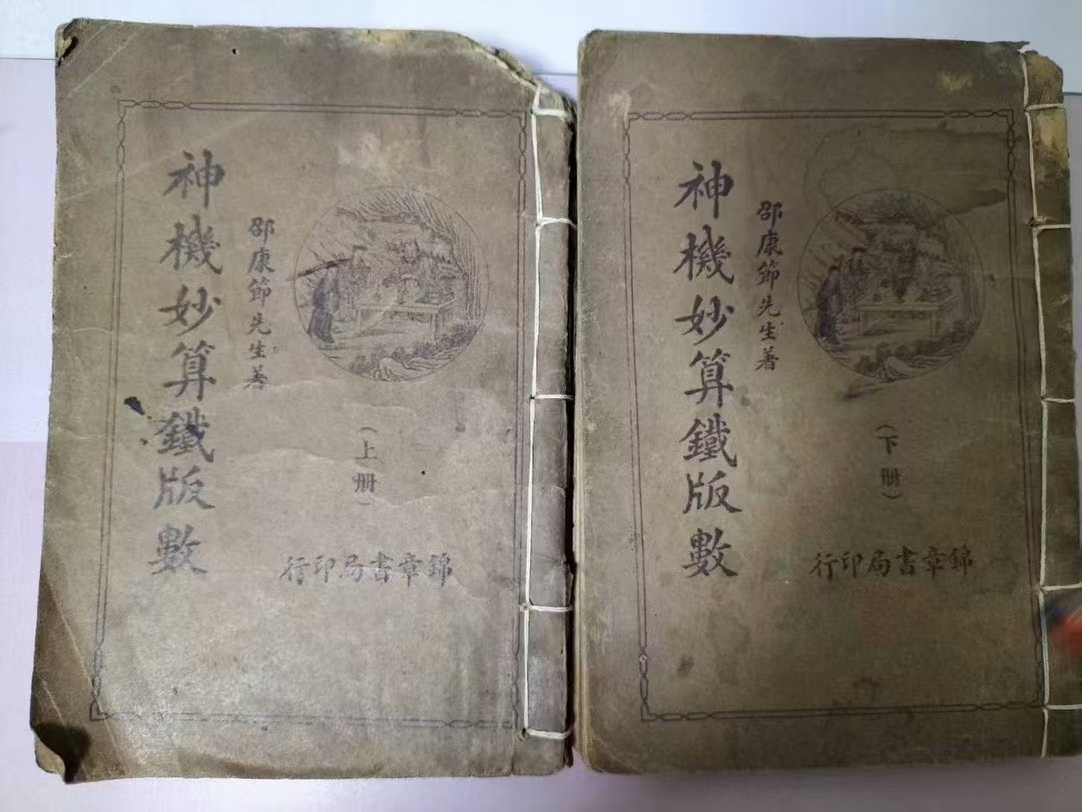 神機妙算鐵版數
邵康節先生著
（上册）
錦章書局印行
神機妙算鐵版數
邵康節先生著
（下册）
錦章書局印行